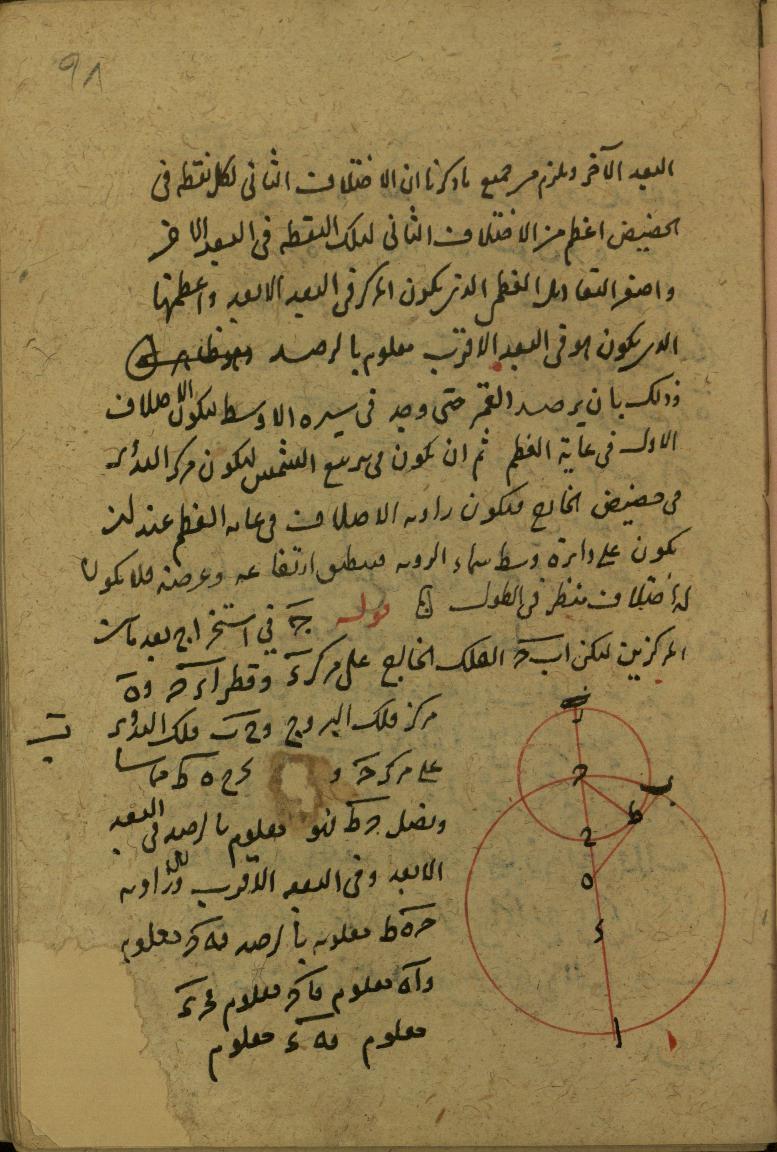 ٩٨
البعد الآخر ويلزم من جميع ما ذكرنا ان الاختلاف الثانى لكل نقطه فى
الحضيض اعظم من الاختلاف الثانى لتلك النقطه فى البعد الاخر
واصغر التفاضل العظمى الذى يكون المركز فى البعد الابعد واعظمها
الذى يكون هو فى البعد الاقرب معلوم بالرصد
وذلك بان يرصد القمر حتى وجد فى سيره الاوسط ليكون الاختلاف
الاول فى غاية العظم ثم ان يكون فى تربيع الشمس ليكون مركز التدوير
فى حضيض الخارج فيكون زاويه الاختلاف فى غايه العظم عند
يكون على دايرة وسط سماء الرويه فينطبق ارتفاعه وعرضه فلا يكون
له اختلاف منظر فى الطول قوله جَ في استخراج بعد مابين
المركزين ليكن اب حـ الفلك الخارج على مركز ءَ وقطر اءحـ وهَ
مركز فلك البروج وحب فلك التدوير
على مركز حـ و ه ط مماسا
ونصل حـ ط فهو معلوم بالرصد فى البعد
الابعد وفى البعد الاقرب وزاويه
حـ ه ط معلومه بالرصد فه حـ معلوم
واه معلوم فاحـ معلوم
معلوم فه ء معلوم
ب
حـ
ب
ط
ح
ه
ء
ا